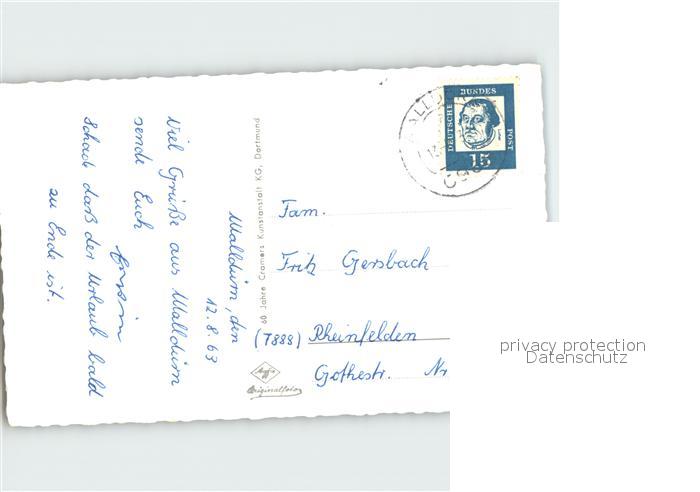 Walldürn, den
12.8.63
Viel Grüße aus Walldürn
sende Euch
Schade daß der Urlaub bald
zu Ende ist.
60 Jahre Cramers Kunstanstalt KG, Dortmund
Agfa
Originalfoto
DEUTSCHE BUNDES POST
15
Fam.
Fritz Gersbach
(7888) Rheinfelden
Gothestr. Nr
privacy protection
Datenschutz